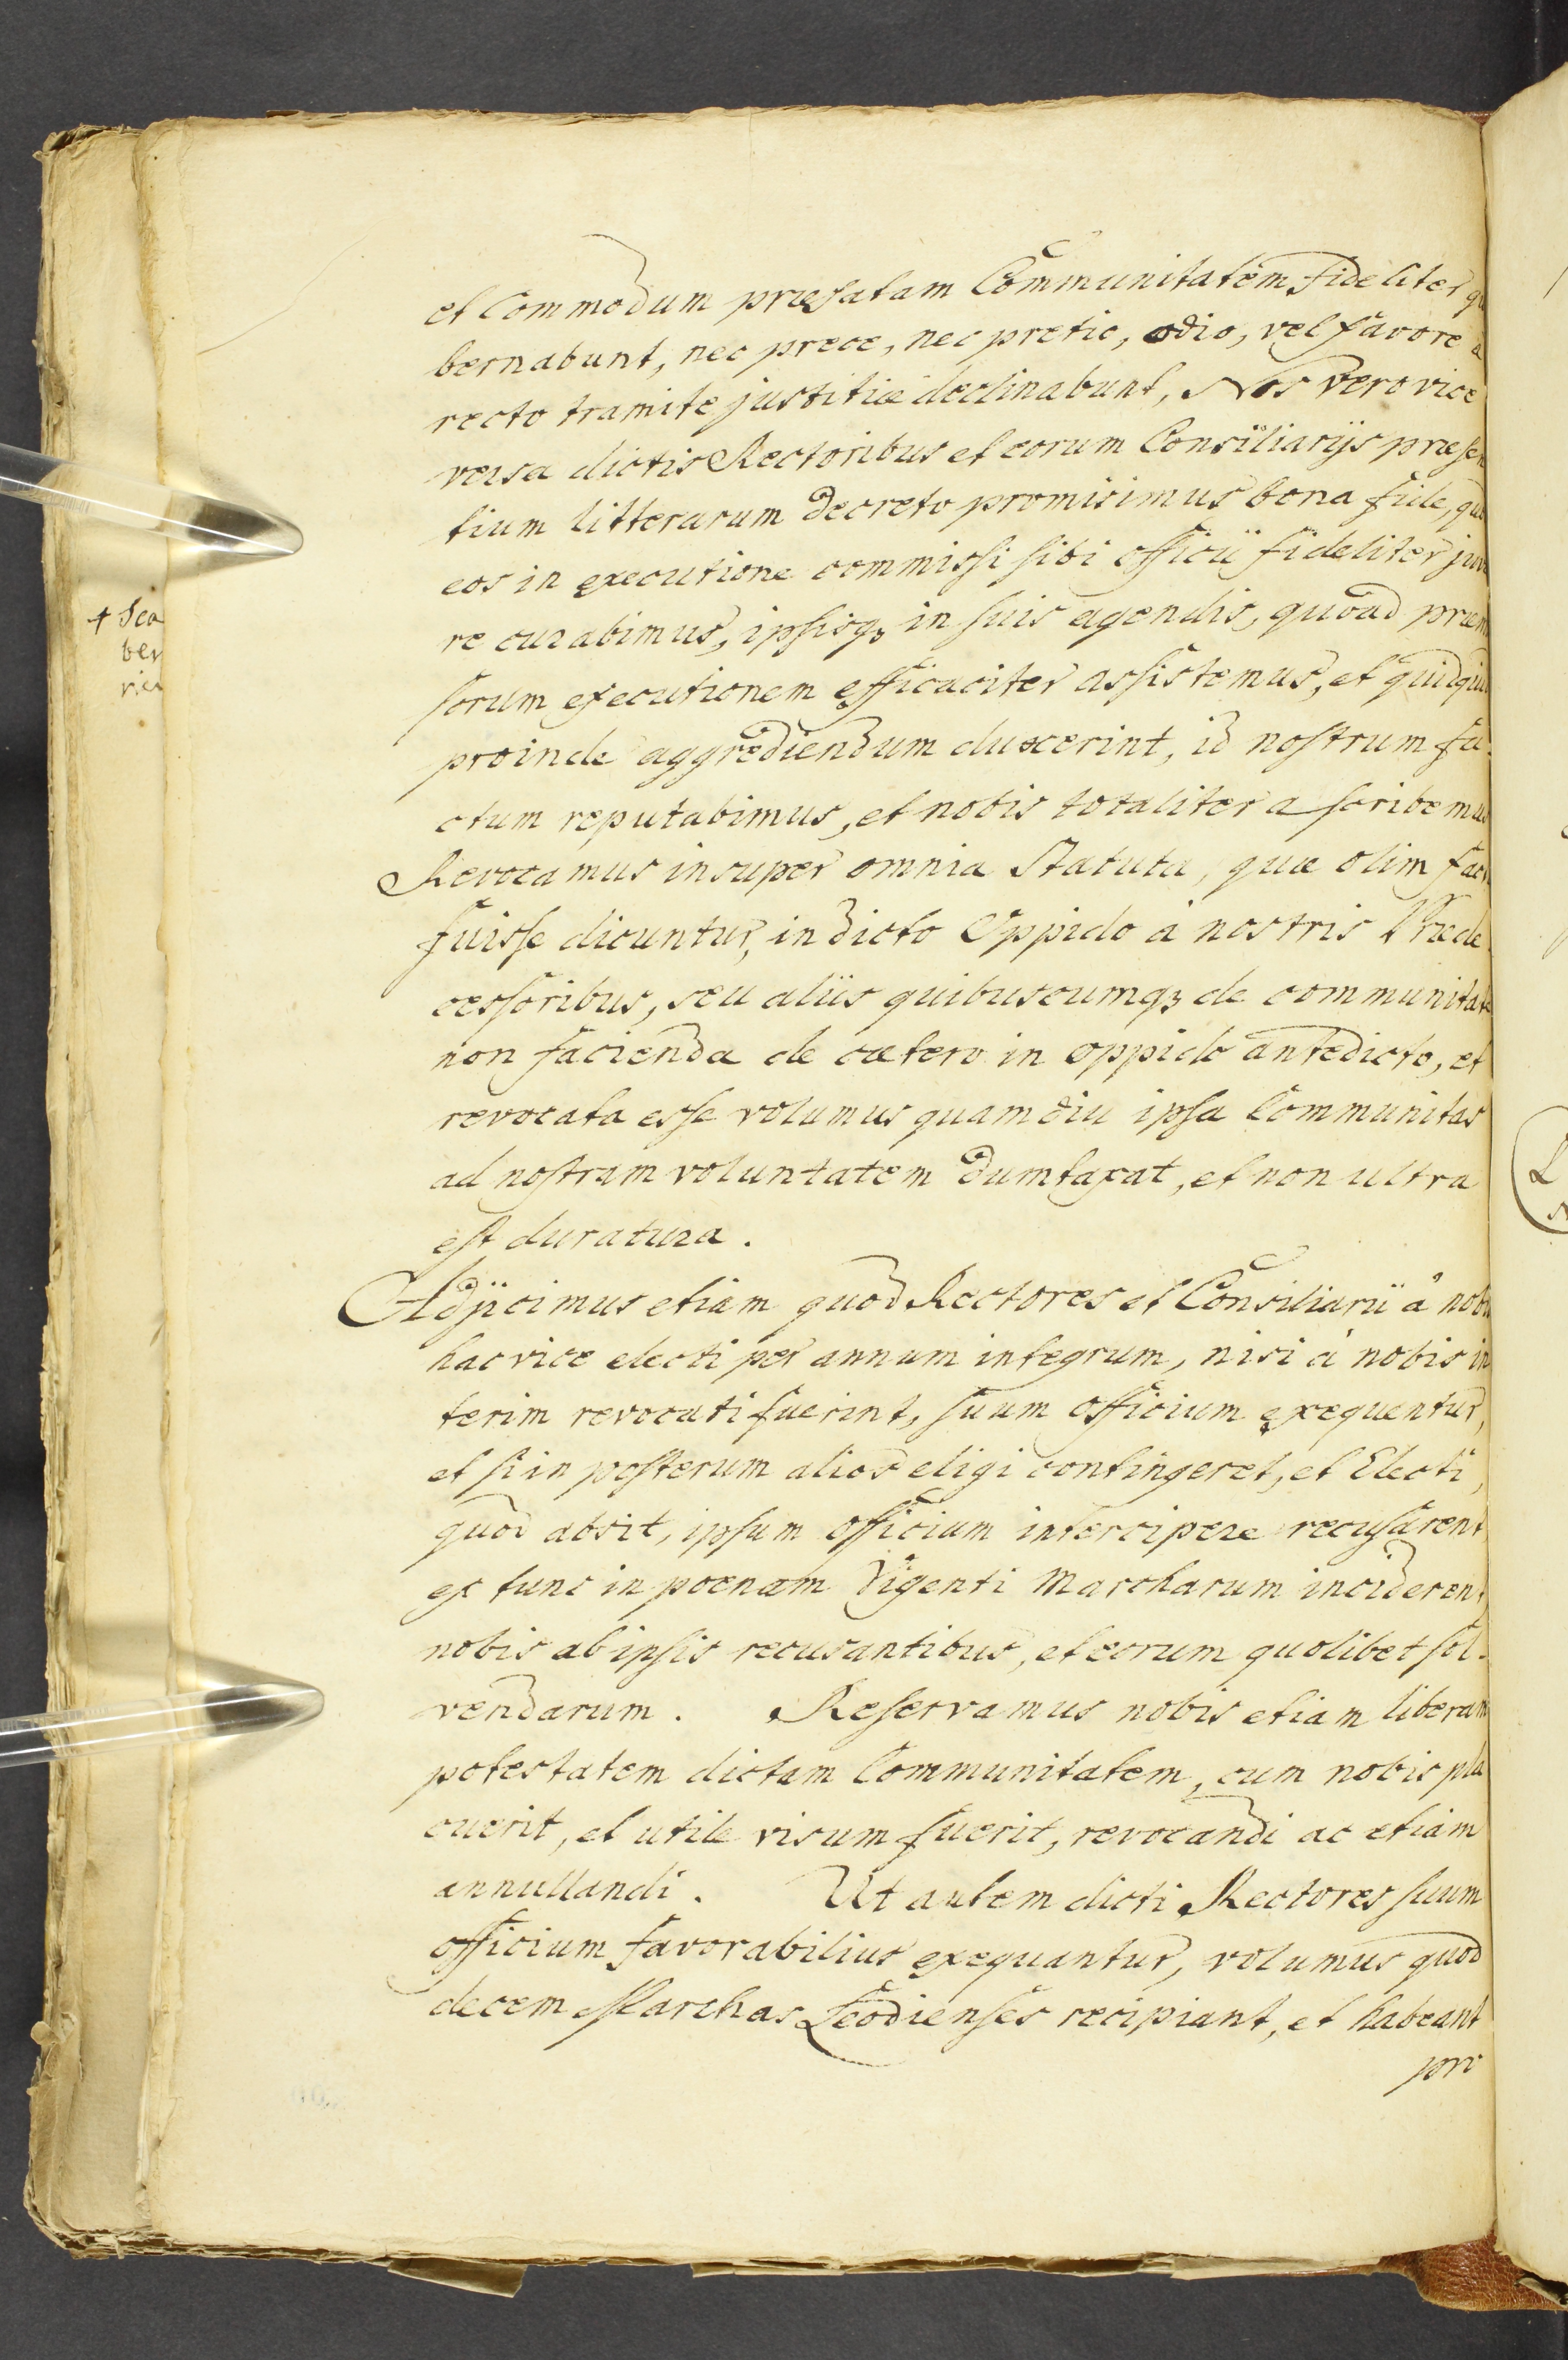 et Commodum præfatam Communitatem fideliter gu
bernabunt, nec prece, nec pretio, odio, vel favore a
recto tramite justitiæ declinabunt, Nos vero vice
versa dictis Rectoribus et eorum Consiliarijs præsen
tium litterarum decreto promisimus bona fide, quod
eos in executione commissi sibi officii fideliter juva
re curabimus, ipsisq₃ in suis agendis, quoad præmis
sorum executionem efficaciter assistemus, et quidquid
proinde aggrediendum duxerint, id nostrum fa-
ctum reputabimus, et nobis totaliter ascribemus
Revocamus insuper omnia Statuta, quæ olim facta
fuisse dicuntur, in dicto Oppido à nostris Præde-
cessoribus, seu aliis quibuscumq₃ de communitate
non facienda de cætero in oppido antedicto, et
revocata esse volumus quamdiu ipsa Communitas
ad nostram voluntatem dumtaxat, et non ultra
est duratura.
Adjicimus etiam quod Rectores et Consiliarii à nobis
hac vice electi per annum integrum, nisi à nobis in
terim revocati fuerint, suum officium exequentur,
et si in posterum alios eligi contingeret, et Electi,
quod absit, ipsum officium intercipere recusarent
ex tunc in poenam Vigenti Marcharum inciderent,
nobis ab ipsis recusantibus, et eorum quolibet sol-
vendarum. Reservamus nobis etiam liberam
potestatem dictam Communitatem, cum nobis pla
cuerit, et utile visum fuerit, revocandi ac etiam
annullandi. Ut autem dicti Rectores suum
officium favorabilius exequantur, volumus quod
decem Marchas Leodienses recipiant, et habeant
pro
+ Sca
ber
rica